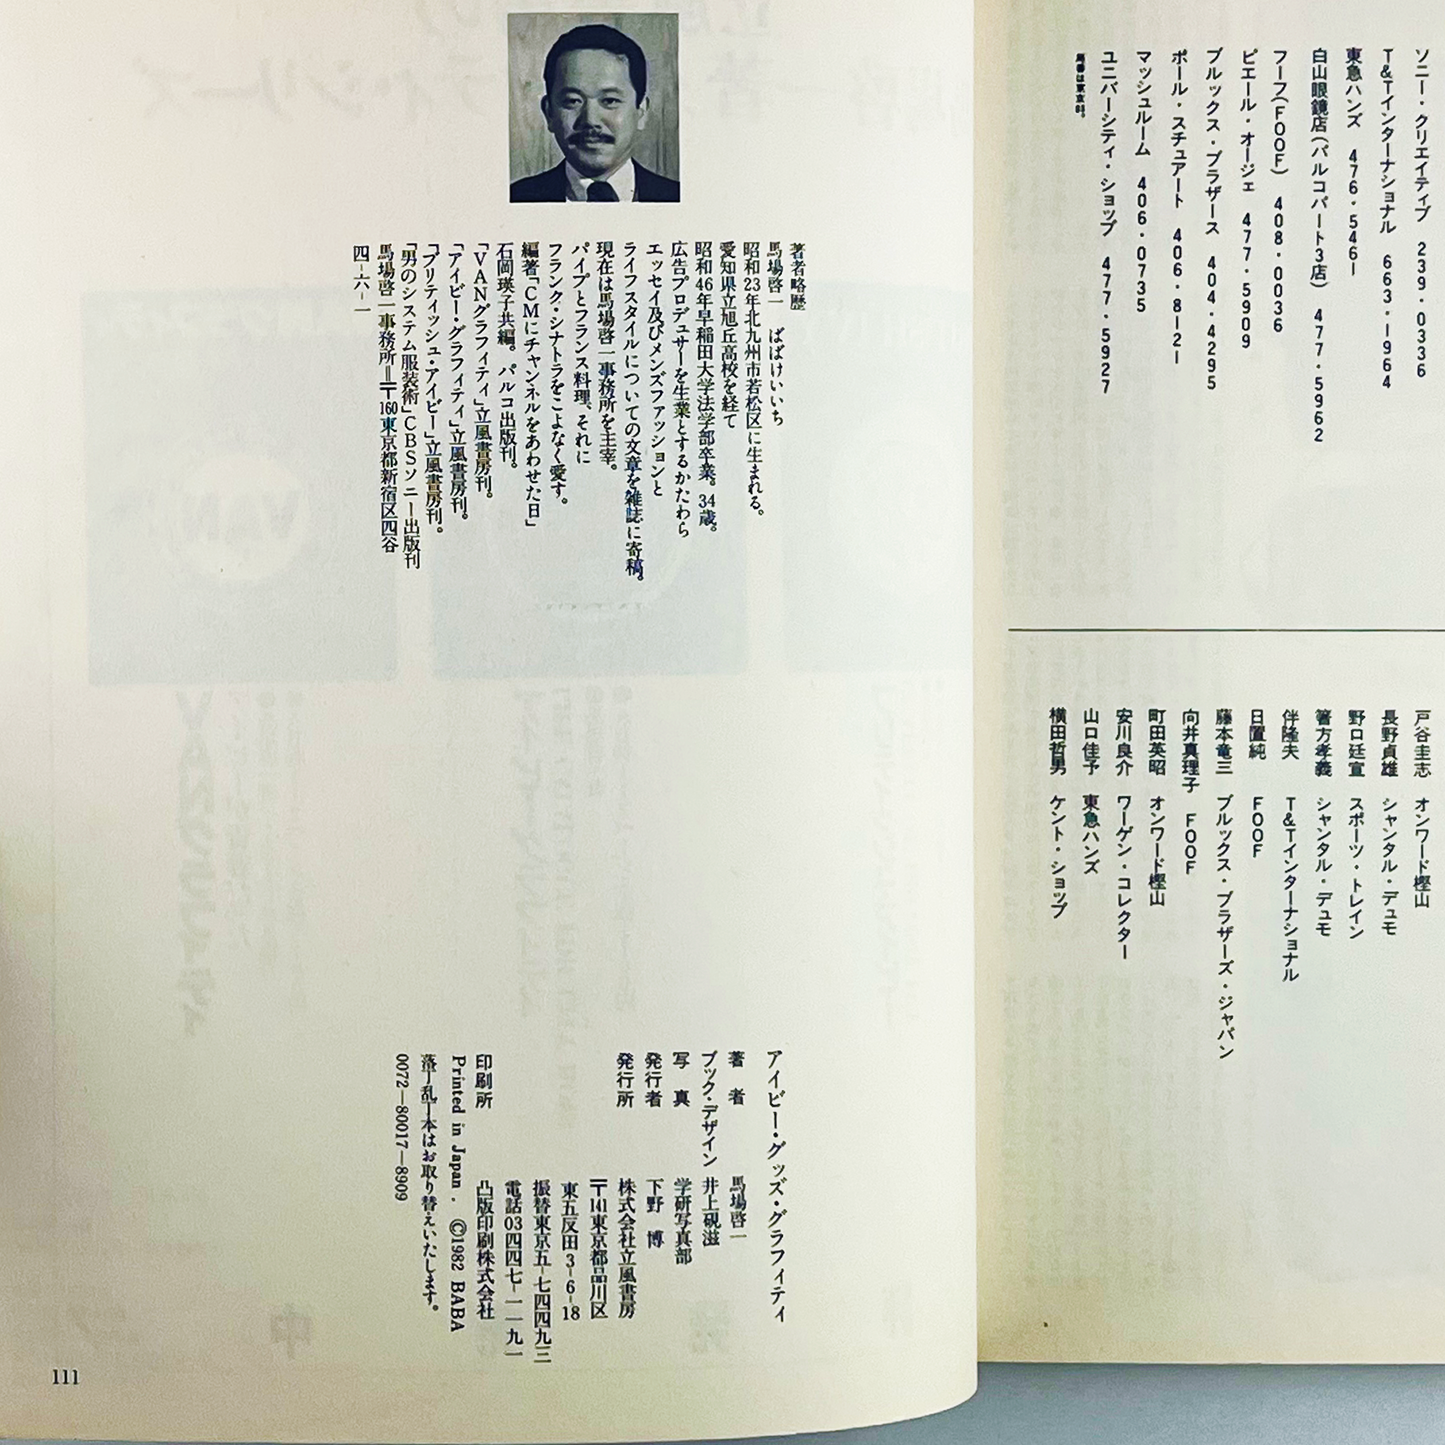 ソニー・クリエイティブ 239・0336
T&Tインターナショナル 663・1964
東急ハンズ 476・5461
白山眼鏡店(パルコパート3店) 477・5962
フーフ(FOOF) 408・0036
ピエール・オージェ 477・5909
ブルックス・ブラザース 404・4295
ポール・スチュアート 406・8121
マッシュルーム 406・0735
ユニバーシティ・ショップ 477・5927
局番は東京03。
戸谷圭志 オンワード樫山
長野貞雄 シャンタル・デュモ
野口廷宣 スポーツ・トレイン
箸方孝義 シャンタル・デュモ
伴隆夫 T&Tインターナショナル
日置純 FOOF
藤本竜三 ブルックス・ブラザーズ・ジャパン
向井真理子 FOOF
町田英昭 オンワード樫山
安川良介 ワーゲン・コレクター
山口佳予 東急ハンズ
横田哲男 ケント・ショップ
著者略歴
馬場啓一 ばばけいいち
昭和23年北九州市若松区に生まれる。
愛知県立旭丘高校を経て
昭和46年早稲田大学法学部卒業。34歳。
広告プロデュサーを生業とするかたわら
エッセイ及びメンズファッションと
ライフスタイルについての文章を雑誌に寄稿。
現在は馬場啓一事務所を主宰。
パイプとフランス料理、それに
フランク・シナトラをこよなく愛す。
編著「CMにチャンネルをあわせた日」
石岡瑛子共編。パルコ出版刊。
「VANグラフィティ」立風書房刊。
「アイビー・グラフィティ」立風書房刊。
「ブリティッシュ・アイビー」立風書房刊。
「男のシステム服装術」CBSソニー出版刊
馬場啓一事務所＝〒160東京都新宿区四谷
四−六−一
アイビー・グッズ・グラフィティ
著者 馬場啓一
ブック・デザイン 井上硯滋
写真 学研写真部
発行者 下野 博
発行所 株式会社立風書房
〒141東京都品川区
東五反田3−6−18
振替東京五−七四四九三
電話03四四七−一一九一
印刷所 凸版印刷株式会社
Printed in Japan. ©1982 BABA
落丁乱丁本はお取り替えいたします。
0072—80017—8909
111